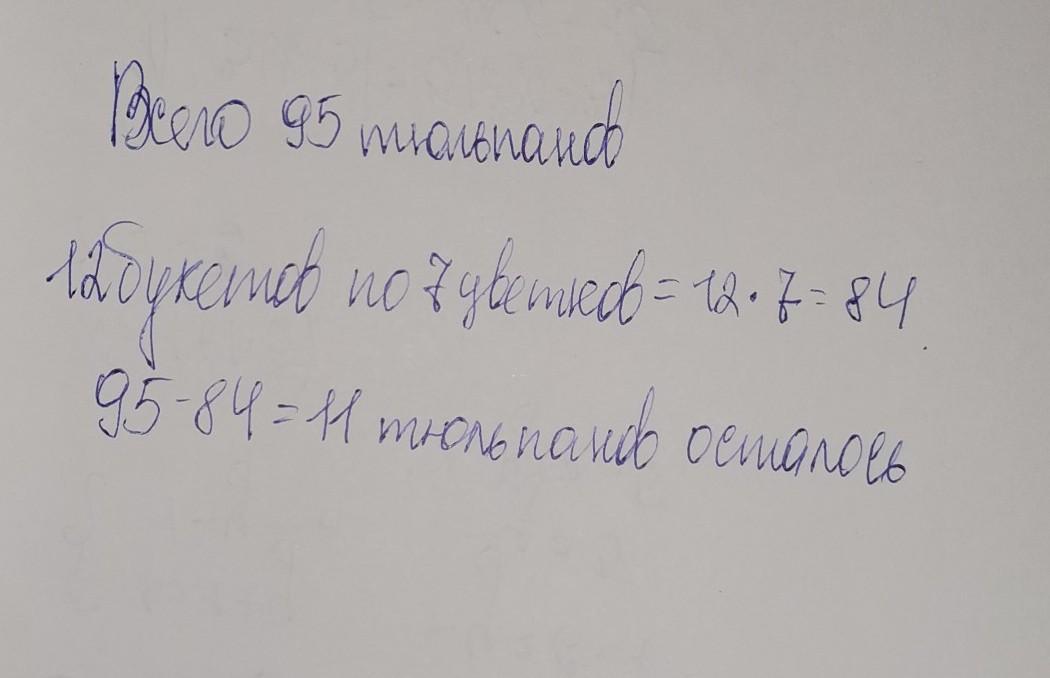 Всего 95 тюльпанов
12 букетов по 7 цветков = 12 · 7 = 84
95 - 84 = 11 тюльпанов осталось